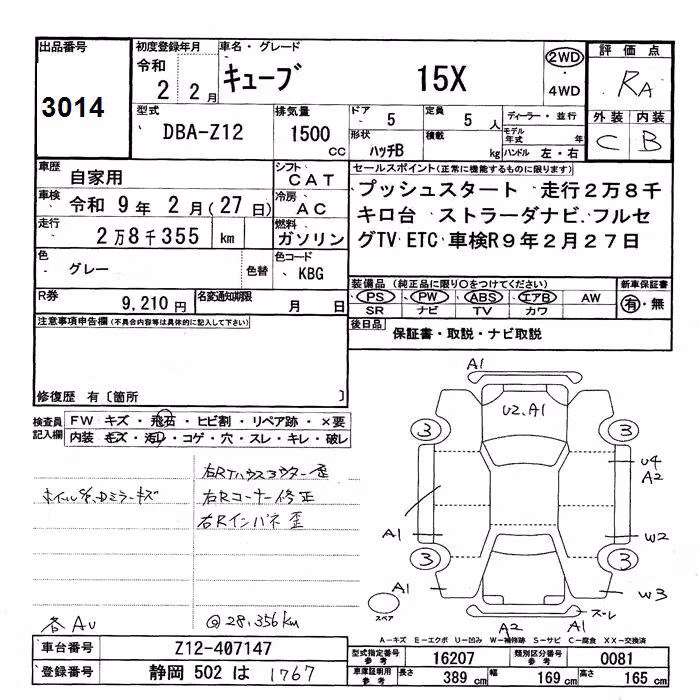 出品番号
3014
初度登録年月
令和
2 2月
車名・グレード
キューブ 15X
2WD
・
4WD
評価点
RA
外装 内装
C B
型式
DBA-Z12
排気量
1500
CC
ドア
5
定員
5 人
形状
ハッチB
積載
kg
ディーラー・並行
モデル年式 年
ハンドル 左・右
車歴
自家用
シフト
CAT
車検
令和 9年 2月(27日)
冷房
AC
走行
2万8千355 km
燃料
ガソリン
色
グレー
色替
色コード
KBG
R券
9,210円
名変通知期限
月 日
セールスポイント(正常に機能するものに限ります)
プッシュスタート 走行2万8千
キロ台 ストラーダナビ.フルセ
グTV ETC 車検R9年2月27日
装備品 (純正品に限り○をつけてください)
PS PW ABS エアB AW
SR ナビ TV カワ
新車保証書
有・無
後日品
保証書・取説・ナビ取説
注意事項申告欄(不具合内容等は具体的に記入して下さい)
修復歴 有〔箇所 〕
検査員
記入欄
FW キズ・飛石・ヒビ割・リペア跡・×要
内装 キズ・汚れ・コゲ・穴・スレ・キレ・破レ
右Rコーナー修正
右Rインパネ歪
各AU
@28,356km
A1
U2.A1
3
3
U4
A2
A1
W2
3
3
A1
W3
スペア
A2
A1
スレ
A-キズ E-エクボ U-凹み W-補修跡 S-サビ C-腐食 XX-交換済
車台番号
Z12-407147
登録番号
静岡 502 は 1767
型式指定番号
参考
16207
類別区分番号
参考
0081
車庫証明用
参考
長さ
389 cm
幅
169 cm
高さ
165 cm